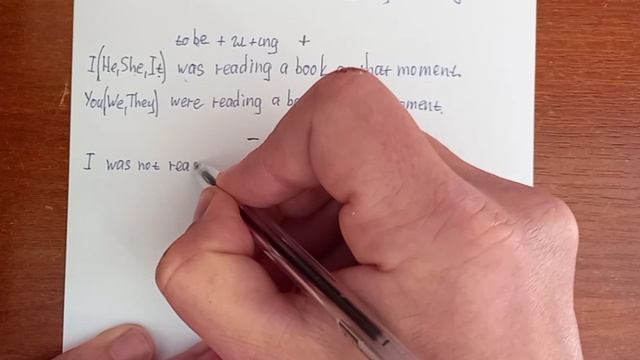 to be + и + ing +
I (He, She, It) was reading a book that moment.
You (We, They) were reading a
-
I was not rea